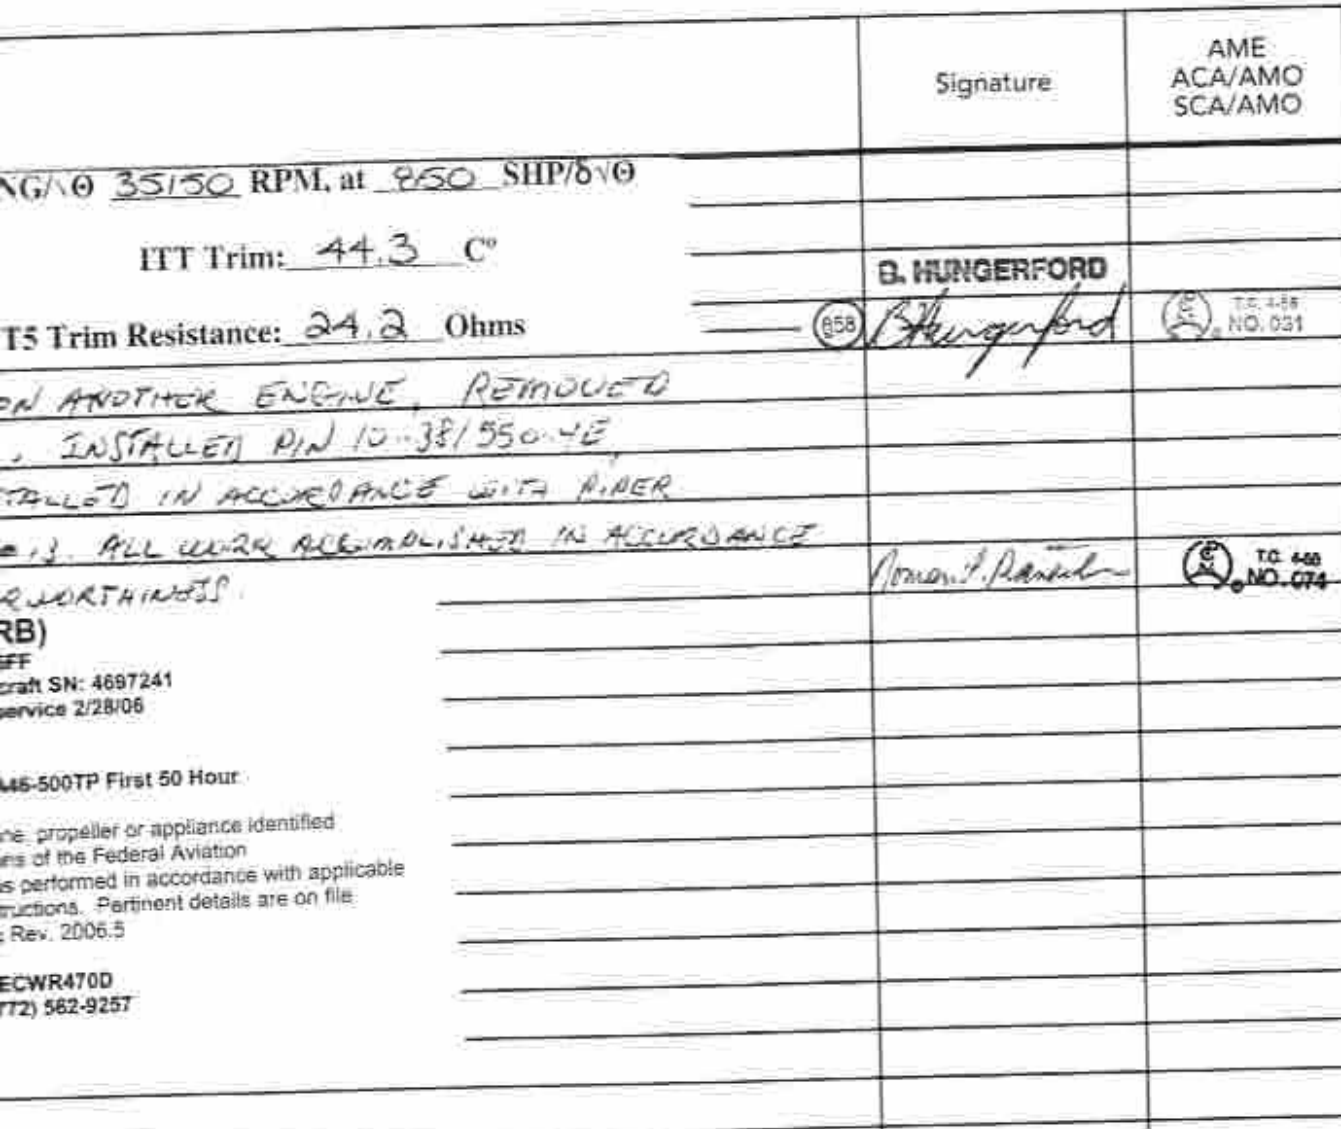 Signature
AME
ACA/AMO
SCA/AMO
NG/√Θ 35150 RPM, at 850 SHP/δ√Θ
ITT Trim: 44.3 C°
B. HUNGERFORD
T5 Trim Resistance: 24.2 Ohms
858 BHungerford
T.C. 4-58
NO. 031
ON ANOTHER ENGINE, REMOVED
. INSTALLED P/N 10-381550-4E,
TALLED IN ACCORDANCE WITH PIPER
13. ALL WORK ACCOMPLISHED IN ACCORDANCE
T.C. 4-58
NO. 074
RWORTHINESS.
RB)
craft SN: 4697241
service 2/28/06
A46-500TP First 50 Hour
ne, propeller or appliance identified
ns of the Federal Aviation
s performed in accordance with applicable
tructions. Pertinent details are on file
: Rev. 2006.5
ECWR470D
772) 562-9257